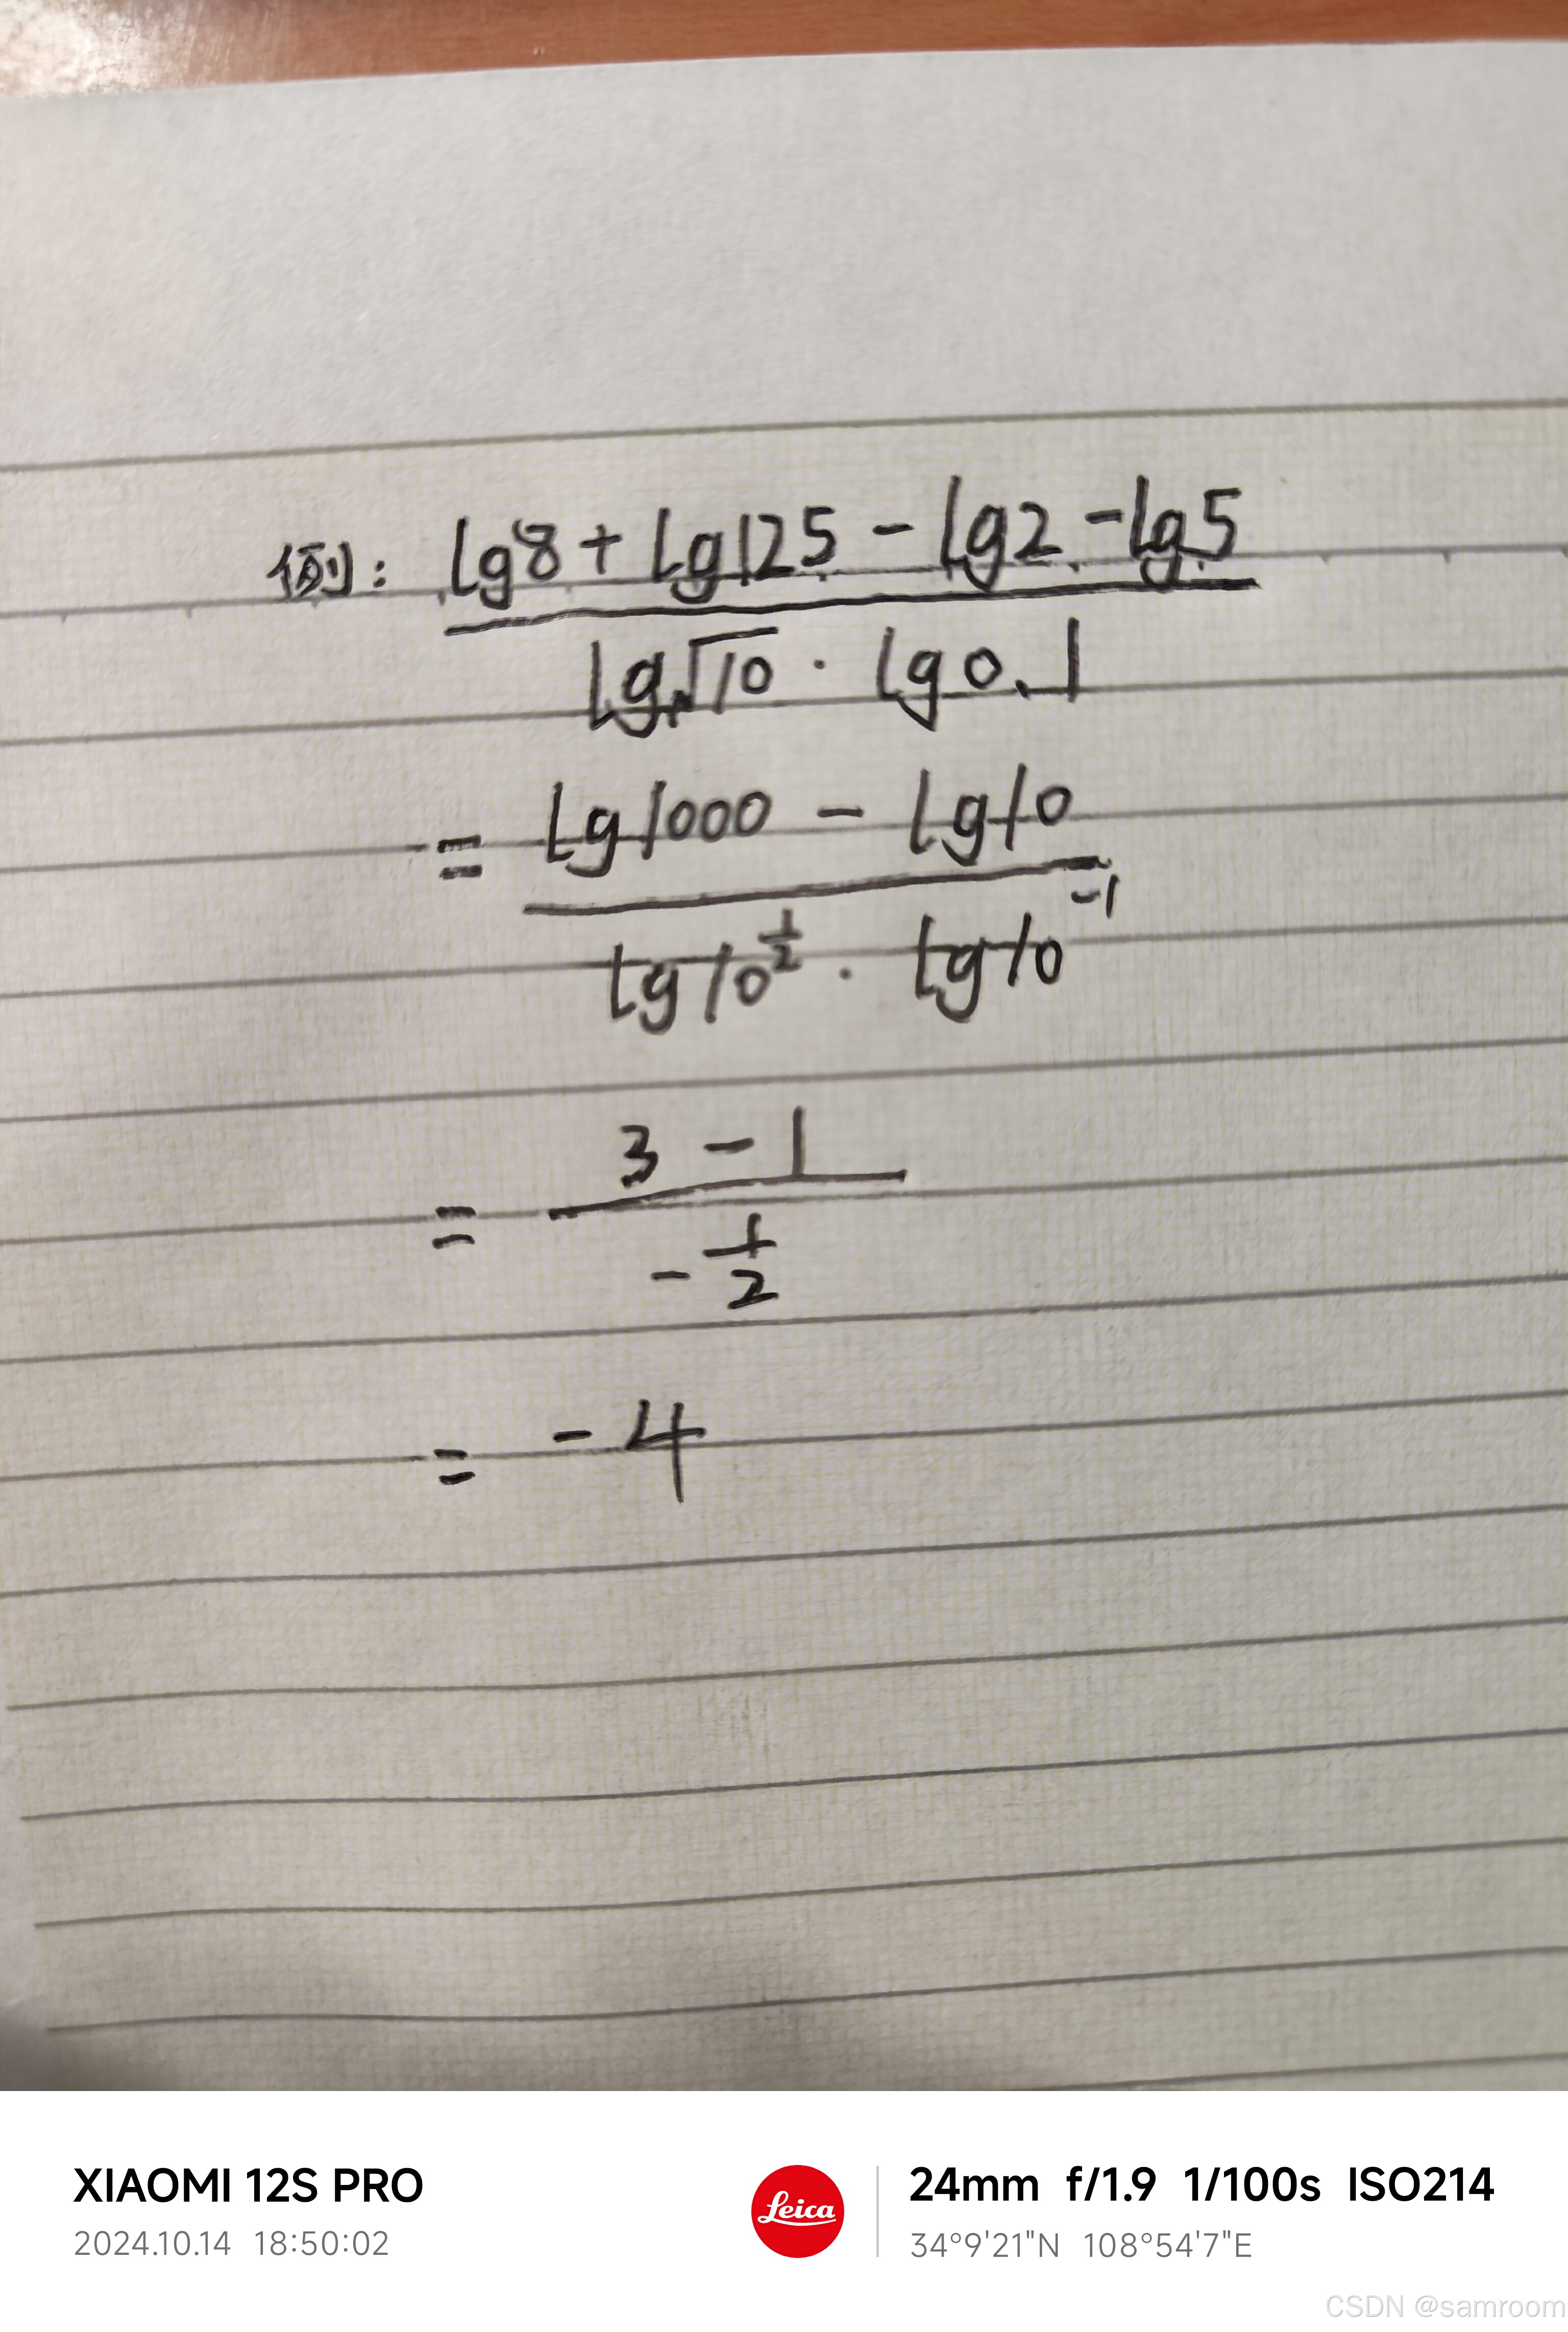 例: lg8 + lg125 - lg2 - lg5
lg√10 · lg0.1
= lg1000 - lg10
lg10^(1/2) · lg10^(-1)
= 3 - 1
- 1/2
= -4
XIAOMI 12S PRO
2024.10.14 18:50:02
Leica
24mm f/1.9 1/100s ISO214
34°9'21"N 108°54'7"E
CSDN @samroom